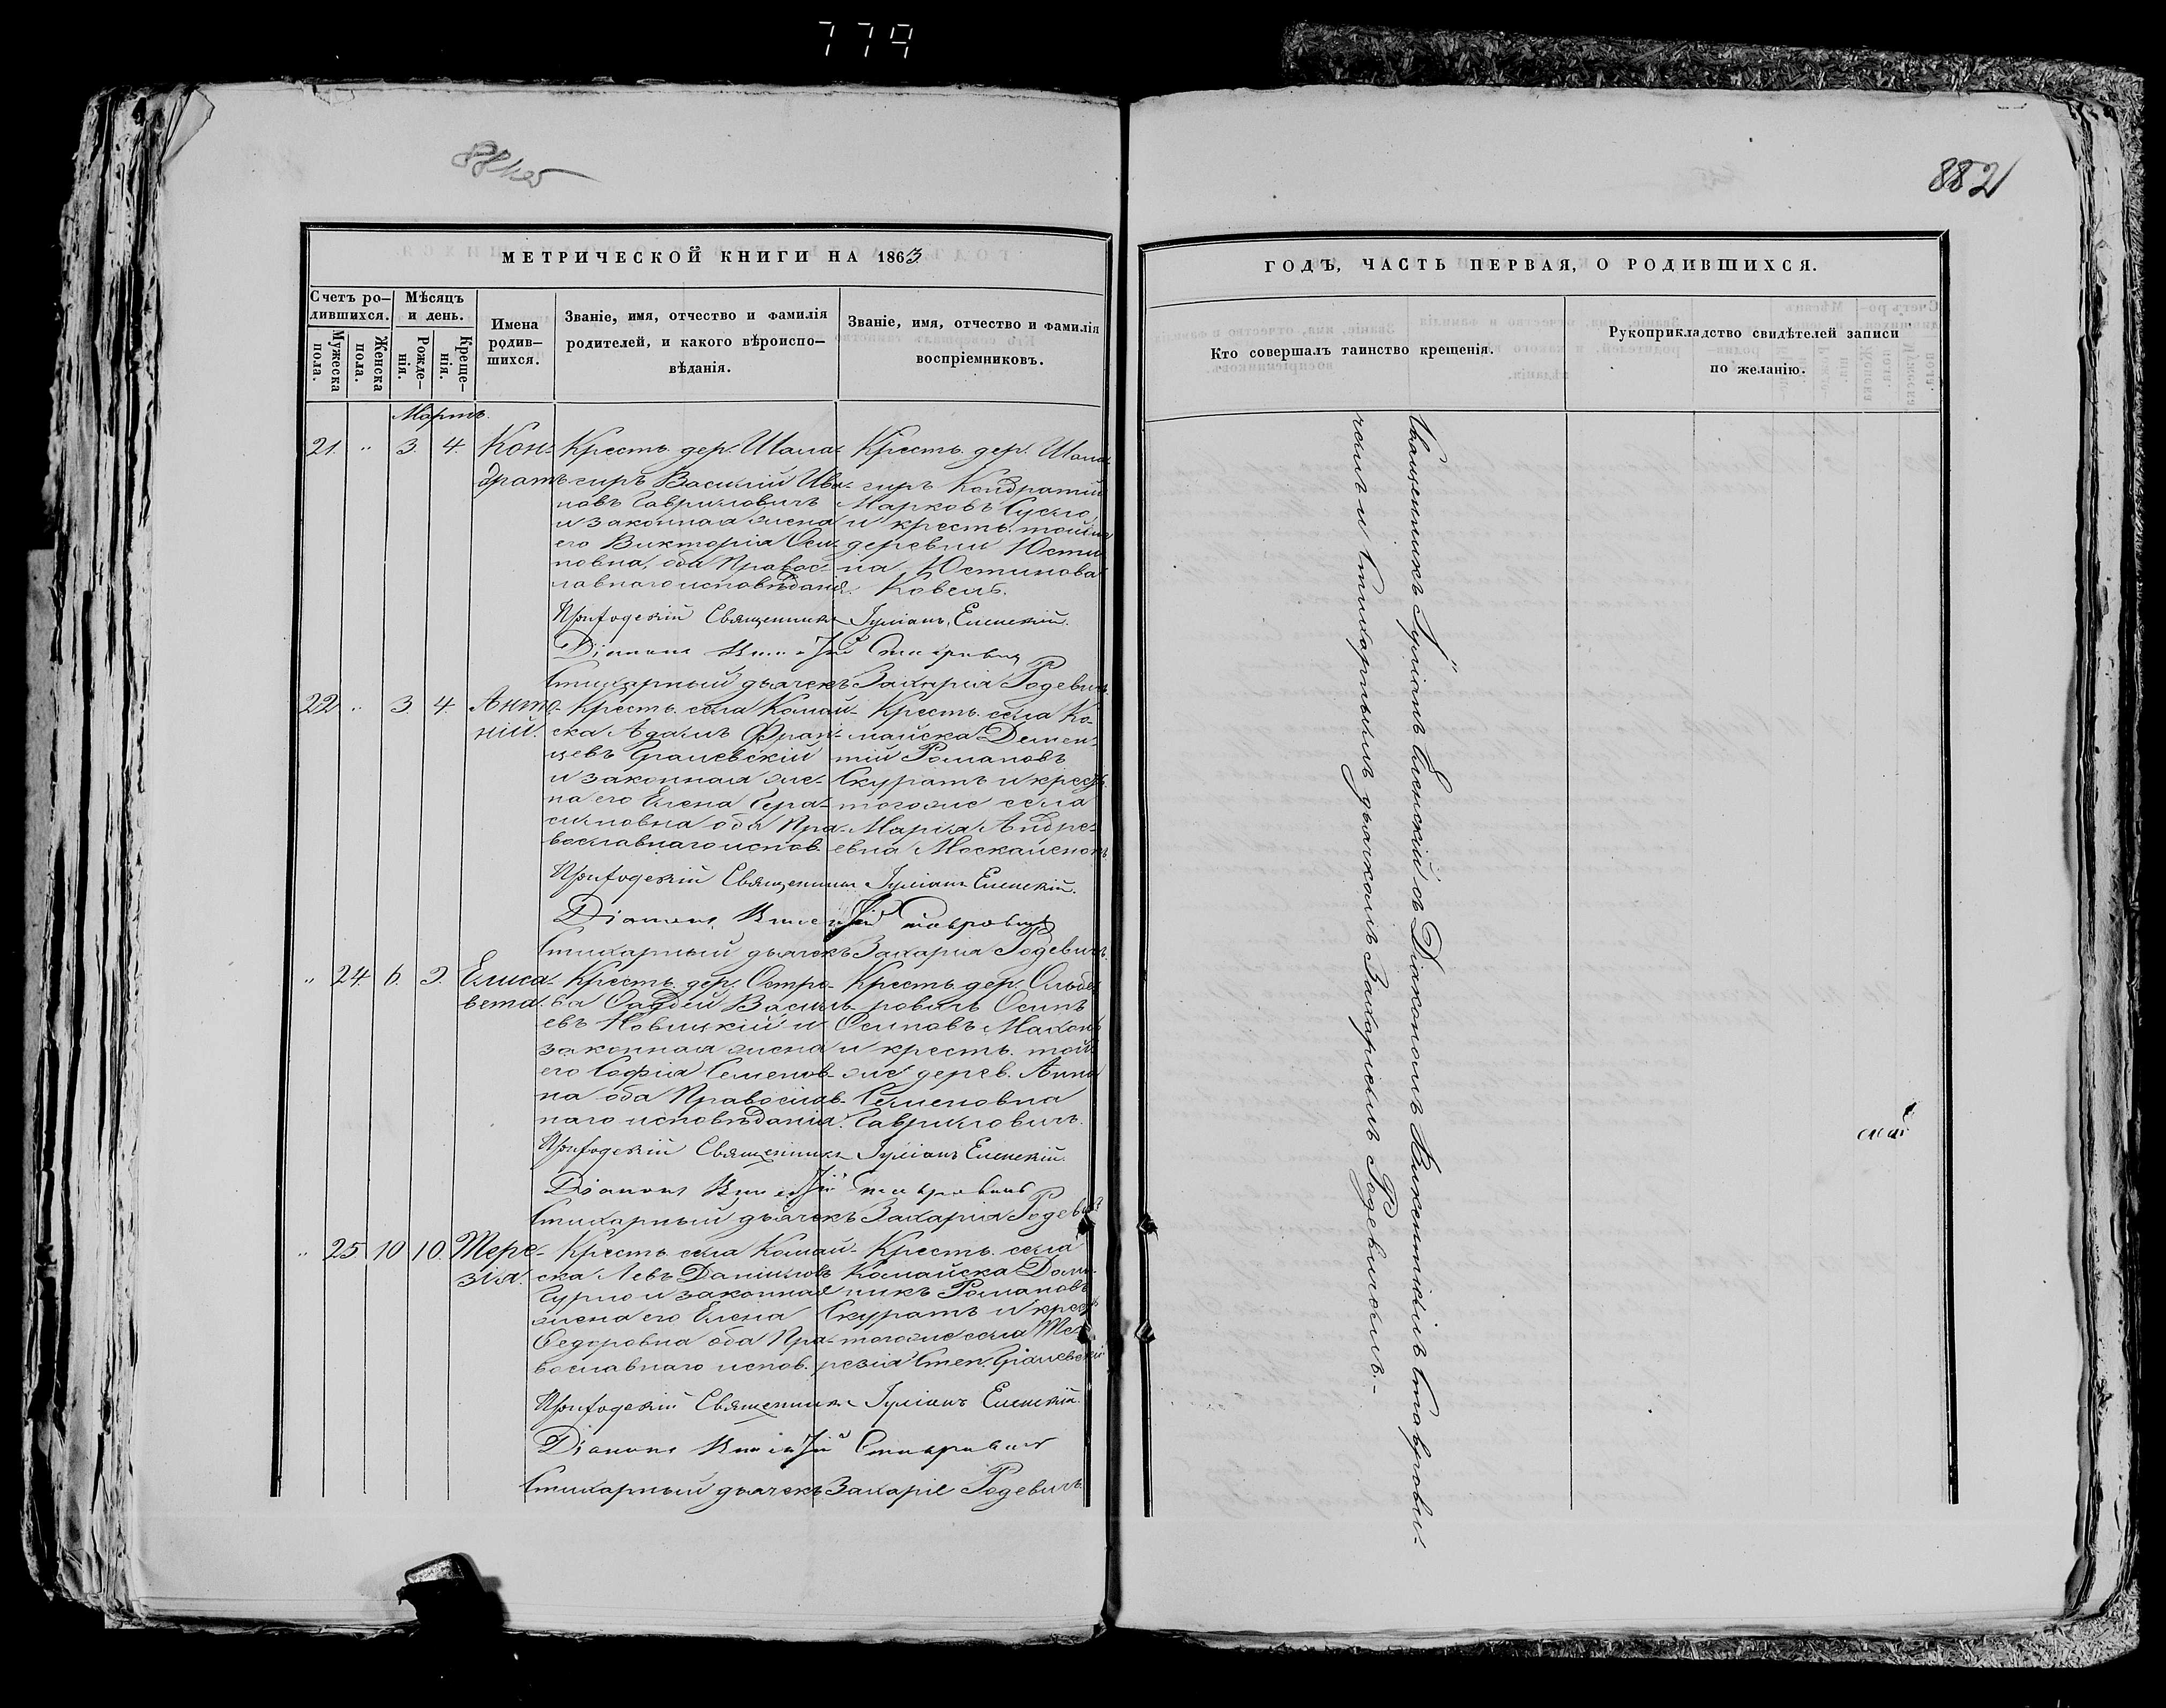 779
882
МЕТРИЧЕСКОЙ КНИГИ НА 1863
Счетъ ро-
дившихся.
Мужеска
пола.
Женска
пола.
Мѣсяцъ
и день.
Рожде-
нія.
Креще-
нія.
Имена
родив-
шихся.
Званіе, имя, отчество и фамилія
родителей, и какого вѣроиспо-
вѣданія.
Званіе, имя, отчество и фамилія
воспріемниковъ.
Мартъ.
21. " 3. 4.
Кон-
дратъ
Крестъ. дер. Шала-
гиръ Василій Ива-
новъ Гавриловичъ
и законная жена
его Викторія Оси-
повна, оба Правос-
лавнаго исповѣданія.
Крестъ. дер. Шала-
гиръ Кондратій
Марковъ
и крестъ. тойже
деревни Юсти-
на Юстинова
Ковель.
Приходскій Священникъ Іуліанъ Еленскій.
Діаконъ Ставровичъ
Стихарный дьячекъ Захарія Родевичъ.
22 " 3. 4.
Анто-
ній.
Крестъ. села Комай-
ска Адамъ Фран-
цевъ Гралевскій
и законная же-
на его Елена Гера-
симовна оба Пра-
вославнаго испов.
Крестъ. села Ко-
майска Демен-
тій Романовъ
Скуратъ и крест.
тогоже села
Марія Андре-
евна
Приходскій Священникъ Іуліанъ Еленскій.
Діаконъ Ставровичъ
Стихарный дьячекъ Захарія Родевичъ.
" 24. 6. 9.
Елиса-
вета.
Крестъ. дер. Остро-
ва Фаддей Василь-
евъ Новицкій и
законная жена
его Софія Семенов-
на оба Православ-
наго исповѣданія.
Крестъ. дер.
Осипъ
Осиповъ
и крестъ. той-
же дерев. Анна
Семеновна
Гавриловичъ.
Приходскій Священникъ Іуліанъ Еленскій.
Діаконъ Ставровичъ
Стихарный дьячекъ Захарія Родевичъ
" 25 10 10.
Тере-
зія.
Крестъ. села Комай-
ска Левъ Даниловъ
Гурло и законная
жена его Елена
Федоровна оба Пра-
вославнаго испов.
Крестъ. села
Комайска Доми-
никъ Романовъ
Скуратъ и крест
тогоже села Те-
резія Степ. Гралевскій
Приходскій Священникъ Іуліанъ Еленскій.
Діаконъ Ставровичъ
Стихарный дьячекъ Захарія Родевичъ.
ГОДЪ, ЧАСТЬ ПЕРВАЯ, О РОДИВШИХСЯ.
Кто совершалъ таинство крещенія.
Рукоприкладство свидѣтелей записи
по желанію.
Священникъ Іуліанъ Еленскій съ Діакономъ Викентіемъ Ставрови-
чемъ и Стихарнымъ дьячкомъ Захаріемъ Родевичемъ.-